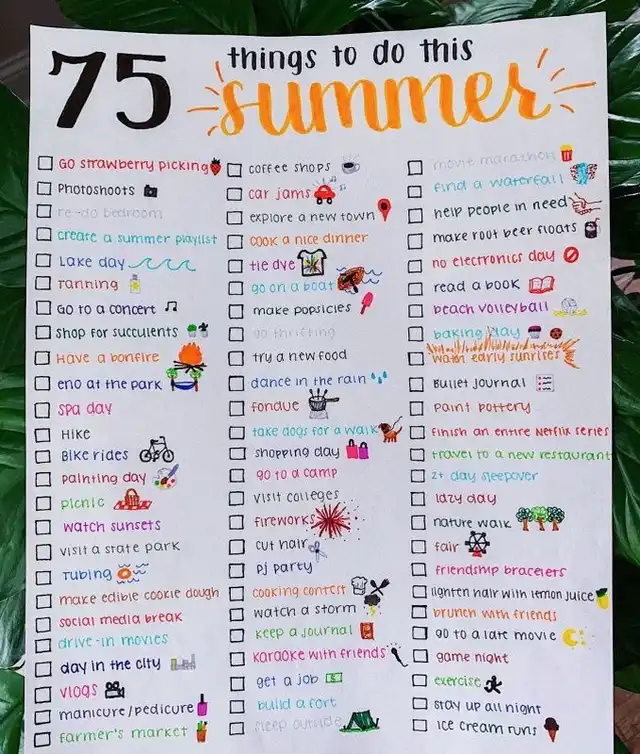 75 things to do this
summer
Go strawberry picking
Photoshoots
re-do bedroom
create a summer playlist
Lake day
tanning
Go to a concert
Shop for succulents
Have a bonfire
eno at the park
spa day
Hike
Bike rides
painting day
picnic
watch sunsets
visit a state park
tubing
make edible cookie dough
social media break
drive-in movies
day in the city
vlogs
manicure/pedicure
farmer's market
coffee shops
car jams
explore a new town
cook a nice dinner
tie dye
go on a boat
make popsicles
go thrifting
try a new food
dance in the rain
fondue
take dogs for a walk
shopping day
go to a camp
visit colleges
fireworks
cut hair
pj party
cooking contest
watch a storm
keep a journal
karaoke with friends
get a job
build a fort
sleep outside
movie marathon
find a waterfall
help people in need
make root beer floats
no electronics day
read a book
beach volleyball
baking day
watch early sunrises
Bullet journal
paint pottery
finish an entire Netflix series
travel to a new restaurant
2+ day sleepover
lazy day
nature walk
fair
friendship bracelets
lighten hair with lemon juice
brunch with friends
go to a late movie
game night
exercise
stay up all night
ice cream runs